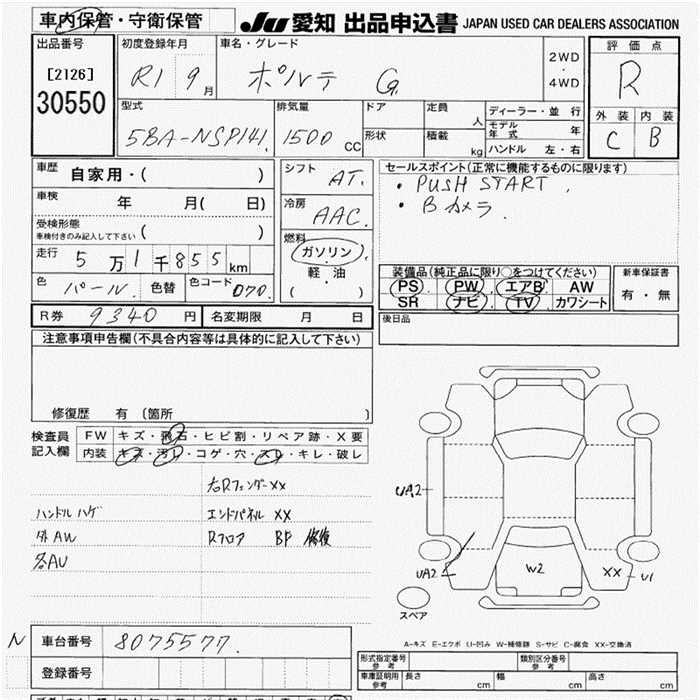 車内保管・守衛保管
JU 愛知 出品申込書 JAPAN USED CAR DEALERS ASSOCIATION
出品番号
[2126]
30550
初度登録年月
R1 9月
車名・グレード
ポルテ G
2WD
・
4WD
評価点
R
外装 内装
C B
型式
5BA-NSP141
排気量
1500 CC
ドア
形状
定員 人
積載 kg
ディーラー・並行
モデル年式 年
ハンドル 左・右
車歴 自家用・( )
車検 年 月( 日)
受検形態
車検付きのみ記入して下さい ( )
走行 5万1千855km
色 パール 色替 色コード 070
シフト AT
冷房 AAC
燃料
ガソリン
軽・油
( )
セールスポイント(正常に機能するものに限ります)
・PUSH START
・Bカメラ
装備品(純正品に限り○をつけてください)
PS PW エアB AW
SR ナビ TV カワシート
新車保証書
有・無
R券 9340円 名変期限 月 日
後日品
注意事項申告欄(不具合内容等は具体的に記入して下さい)
修復歴 有 (箇所 )
検査員記入欄
FW キズ・飛石・ヒビ割・リペア跡・X要
内装 キズ・汚レ・コゲ・穴・スレ・キレ・破レ
右Rフェンダー XX
ハンドルハゲ エンドパネル XX
外AW Rフロア BF 修復
各AU
UA2
UA2
W2
XX
U1
スペア
A-キズ E-エクボ U-凹み W-補修跡 S-サビ C-腐食 XX-交換済
N 車台番号 8075577
登録番号
形式指定番号 参考
類別区分番号 参考
車庫証明用 参考 長さ cm 幅 cm 高さ cm